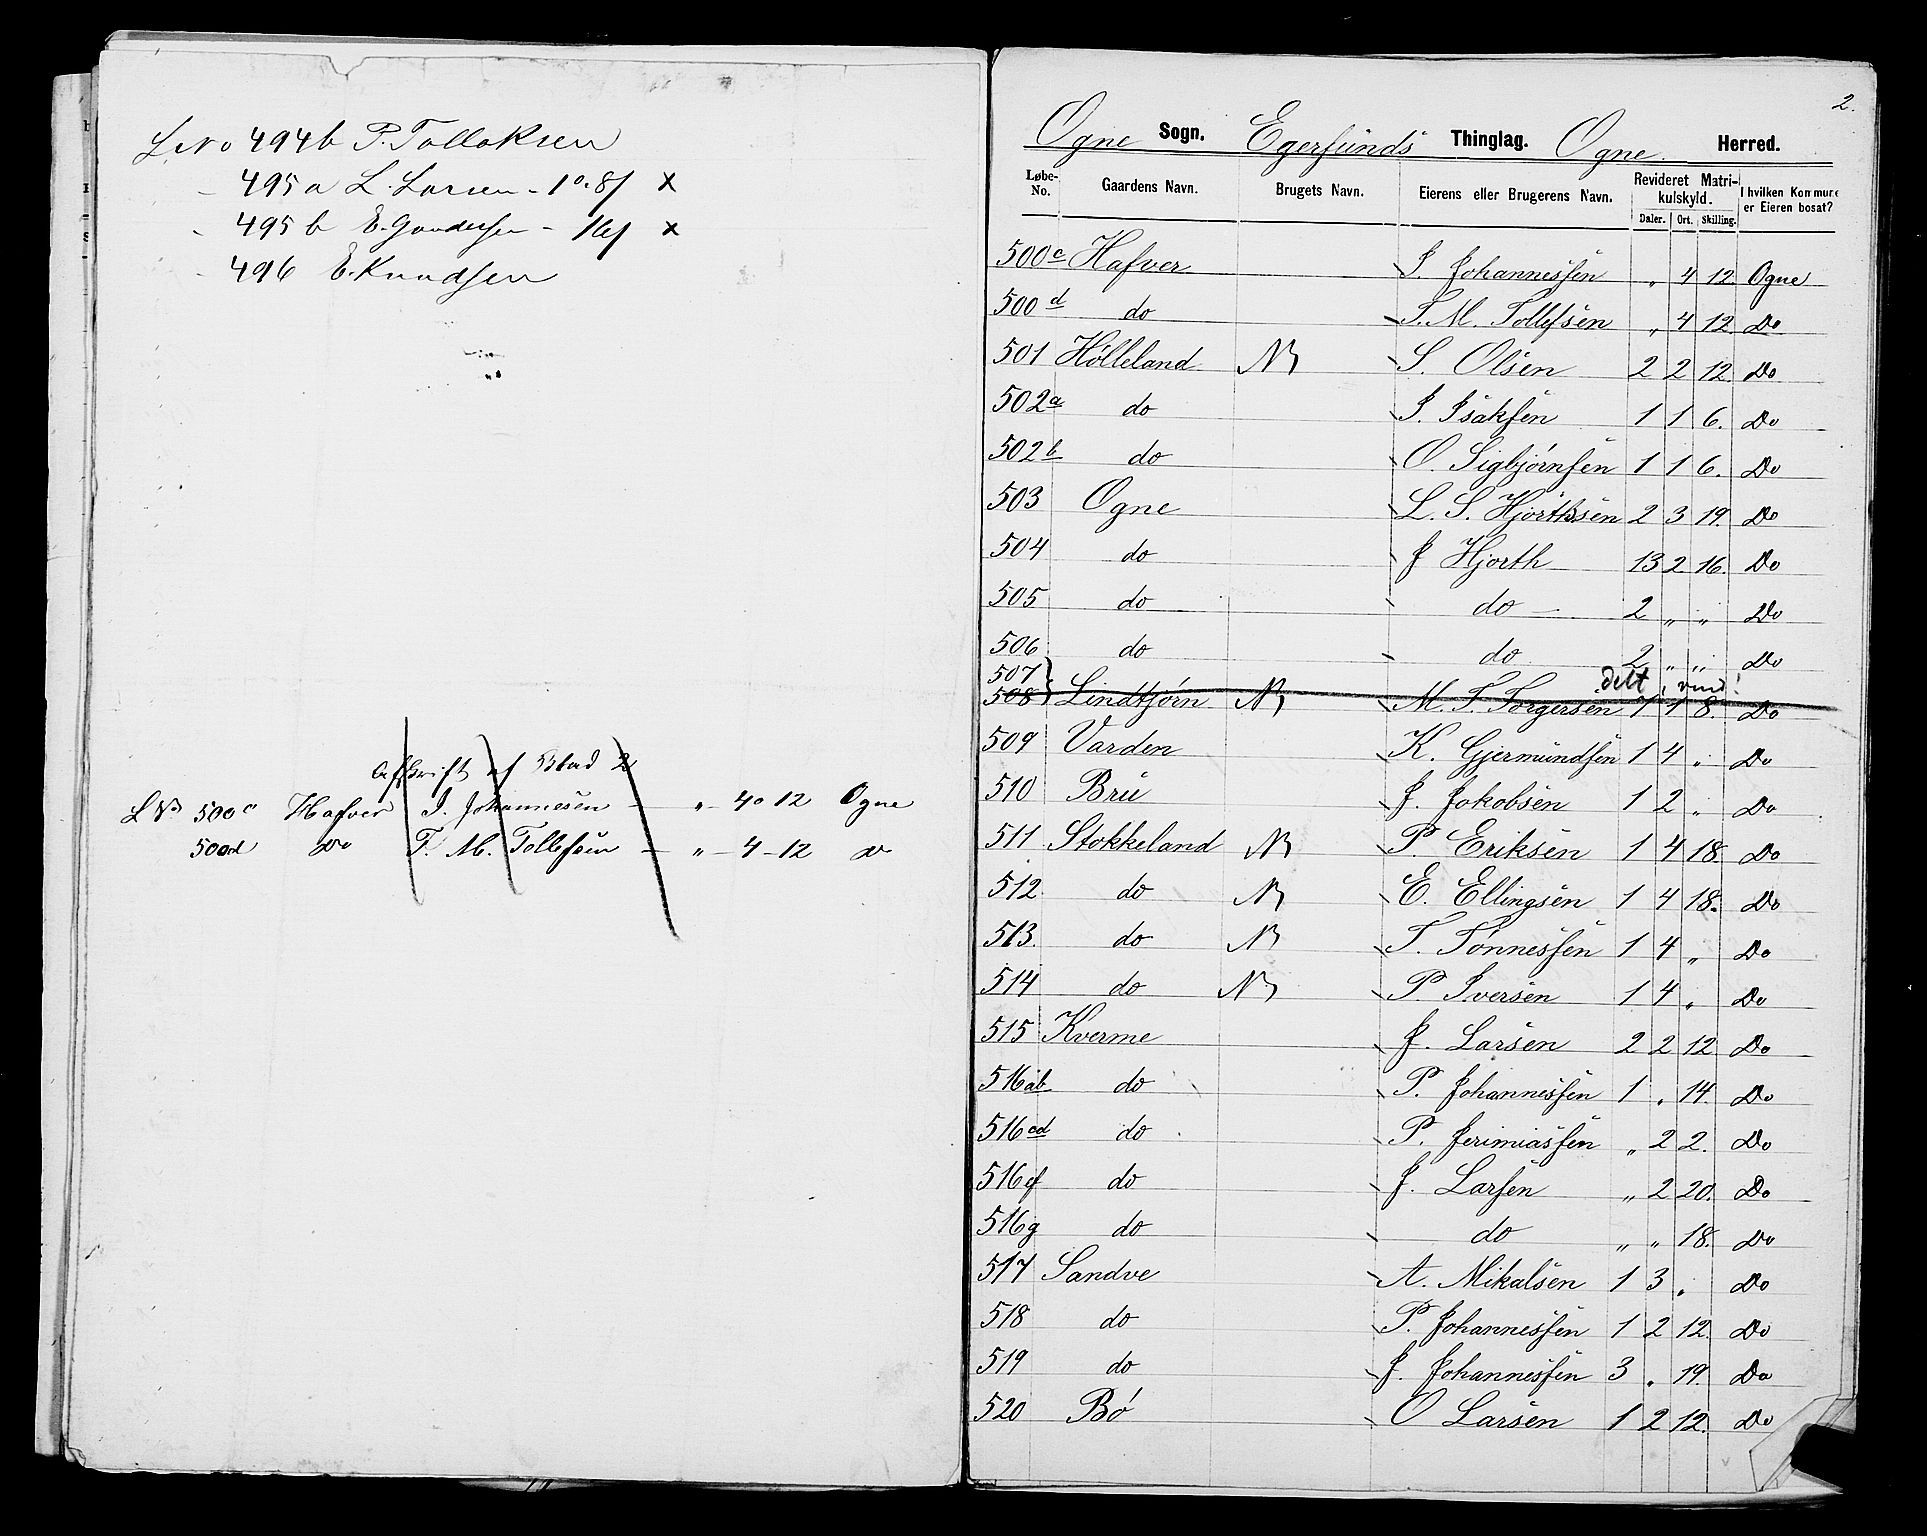 L No 494b P. Tollaksen
- 495a L. Larsen - 1 o. 8 f x
- 495b E. Gundersen - 16 f x
- 496 E. Knudsen
Afskrift af Blad 2
L No 500c Hafver I. Johannesen — " - 4 o 12 Ogne
500d Do T. M. Tollefsen — " - 4 - 12 do
2.
Ogne Sogn. Egersunds Thinglag. Ogne Herred.
Løbe-No. Gaardens Navn. Brugets Navn. Eierens eller Brugerens Navn. Revideret Matrikulskyld. I hvilken Kommune er Eieren bosat?
Daler. Ort. Skilling.
500c Hafver I. Johannessen " 4 12 Ogne
500d do T. M. Tollefsen " 4 12 Do
501 Hølleland S. Olsen 2 2 12 Do
502a do I. Isaksen 1 1 6. Do
502b do O. Sigbjørnsen 1 1 6. Do
503 Ogne L. S. Hjorthsen 2 3 19. Do
504 do J Hjorth 13 2 16. Do
505 do do 2 " " Do
506 do do 2 " " Do
507
delt
508 Lindtjørn M. T. Torgersen 1 1 8. Do
509 Varden K. Gjermundsen 1 4 " Do
510 Bru J. Jakobsen 1 2 " Do
511 Stokkeland P. Eriksen 1 4 18. Do
512. do E. Ellingsen 1 4 18. Do
513. do T. Tønnessen 1 4 " Do
514 do P. Iversen 1 4 " Do
515 Kverme J. Larsen 2 2 12 Do
516ab do P. Johannessen 1 " 14. Do
516cd do P. Jerimiassen " 2 2. Do
516ef do J. Larsen " 2 20. Do
516g do do " " 18. Do
517 Sandve A. Mikalsen 1 3 " Do
518 do P. Johannessen 1 2 12. Do
519 do J. Johannessen 3 " 19. Do
520 Bø O Larsen 1 2 12. Do